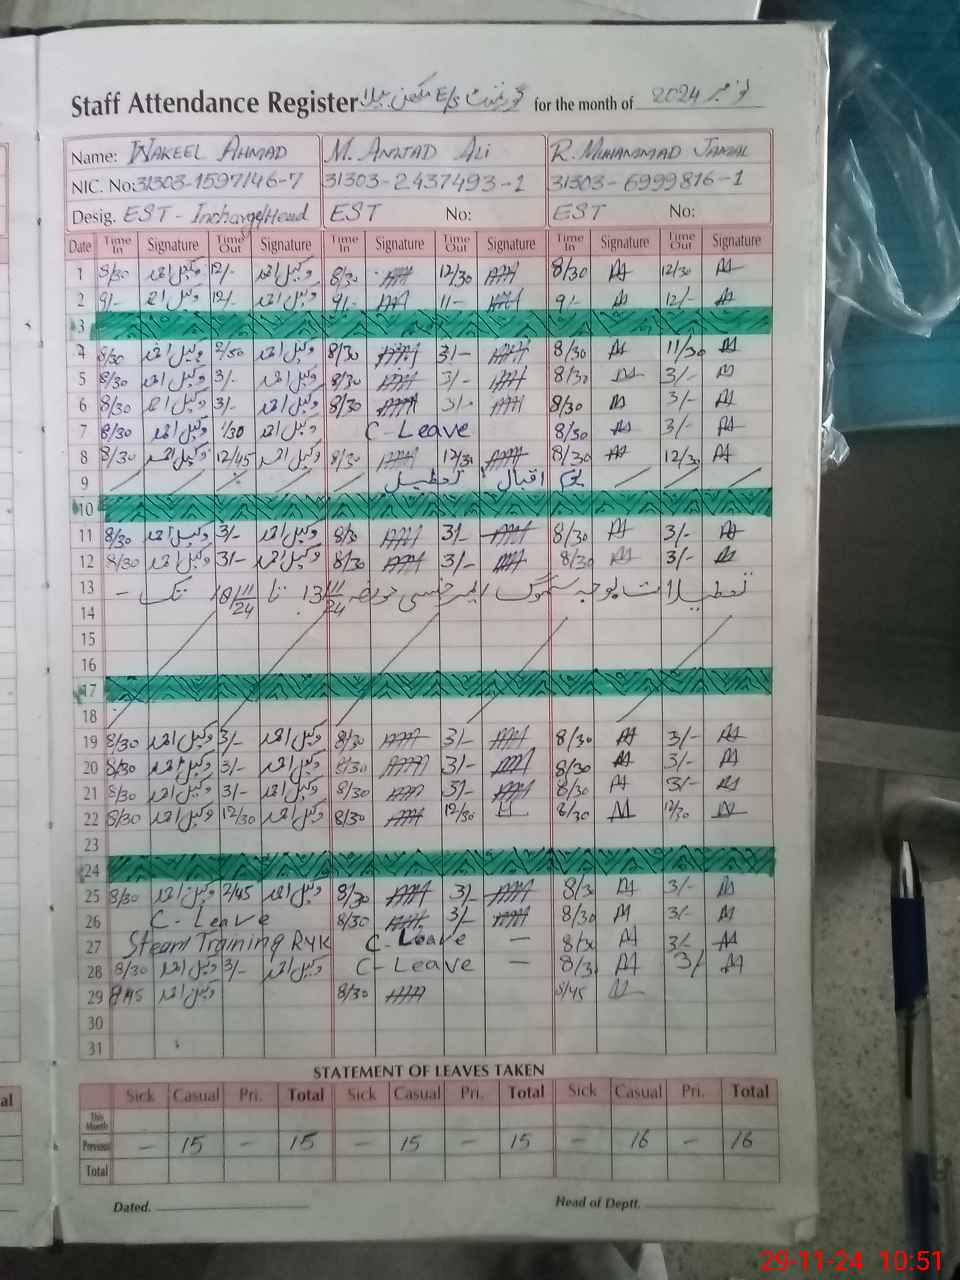 Staff Attendance Register گورنمنٹ E/S for the month of نومبر 2024
Name: WAKEEL AHMAD M. AMJAD Ali R. MUHAMMAD JAMAL
NIC. No: 31303-1597146-7 31303-2437493-1 31303-6999816-1
Desig. EST - Incharge/Head EST No: EST No:
Date Time In Signature Time Out Signature Time In Signature Time Out Signature Time In Signature Time Out Signature
1 8/30 وکیل احمد 12/- وکیل احمد 8/30 12/30 8/30 12/30
2 9/- وکیل احمد 12/- وکیل احمد 9/- 11- 9/- 12/-
3
4 8/30 وکیل احمد 2/50 وکیل احمد 8/30 3/- 8/30 11/30
5 8/30 وکیل احمد 3/- وکیل احمد 8/30 3/- 8/30 3/-
6 8/30 وکیل احمد 3/- وکیل احمد 8/30 3/- 8/30 3/-
7 8/30 وکیل احمد 1/30 وکیل احمد C-Leave 8/30 3/-
8 8/30 وکیل احمد 12/45 وکیل احمد 8/30 12/30 8/30 12/30
9 یوم اقبال تعطیل
10
11 8/30 وکیل احمد 3/- وکیل احمد 8/30 3/- 8/30 3/-
12 8/30 وکیل احمد 3/- وکیل احمد 8/30 3/- 8/30 3/-
13 تعطیلات بوجہ سموگ ایمرجنسی مورخہ 13/11/24 تا 18/11/24 تک -
14
15
16
17
18
19 8/30 وکیل احمد 3/- وکیل احمد 8/30 3/- 8/30 3/-
20 8/30 وکیل احمد 3/- وکیل احمد 8/30 3/- 8/30 3/-
21 8/30 وکیل احمد 3/- وکیل احمد 8/30 3/- 8/30 3/-
22 8/30 وکیل احمد 12/30 وکیل احمد 8/30 12/30 8/30 12/30
23
24
25 8/30 وکیل احمد 2/45 وکیل احمد 8/30 3/- 8/30 3/-
26 C-Leave 8/30 3/- 8/30 3/-
27 Steam Training RYK C-Leave - 8/30 3/-
28 8/30 وکیل احمد 3/- وکیل احمد C-Leave - 8/30 3/-
29 8/45 وکیل احمد 8/30 8/45
30
31
STATEMENT OF LEAVES TAKEN
Sick Casual Pri. Total Sick Casual Pri. Total Sick Casual Pri. Total
This Month
Previous - 15 - 15 - 15 - 15 - 16 - 16
Total
Dated. Head of Deptt.
al
al
29-11-24 10:51